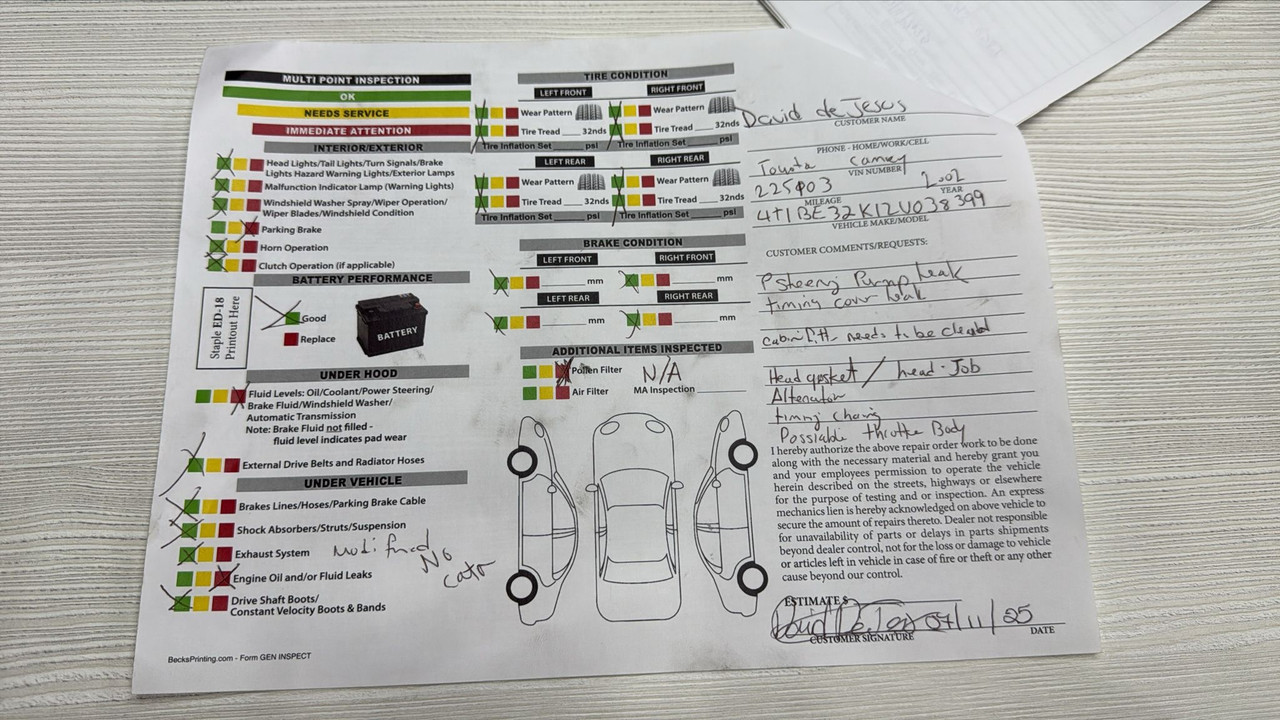 MULTI POINT INSPECTION
OK
NEEDS SERVICE
IMMEDIATE ATTENTION
INTERIOR/EXTERIOR
Head Lights/Tail Lights/Turn Signals/Brake
Lights Hazard Warning Lights/Exterior Lamps
Malfunction Indicator Lamp (Warning Lights)
Windshield Washer Spray/Wiper Operation/
Wiper Blades/Windshield Condition
Parking Brake
Horn Operation
Clutch Operation (if applicable)
BATTERY PERFORMANCE
Staple ED-18
Printout Here
Good
Replace
BATTERY
UNDER HOOD
Fluid Levels: Oil/Coolant/Power Steering/
Brake Fluid/Windshield Washer/
Automatic Transmission
Note: Brake Fluid not filled -
fluid level indicates pad wear
External Drive Belts and Radiator Hoses
UNDER VEHICLE
Brakes Lines/Hoses/Parking Brake Cable
Shock Absorbers/Struts/Suspension
Exhaust System
No
Engine Oil and/or Fluid Leaks
Drive Shaft Boots/
Constant Velocity Boots & Bands
BecksPrinting.com - Form GEN INSPECT
TIRE CONDITION
LEFT FRONT RIGHT FRONT
Wear Pattern Wear Pattern
Tire Tread ____ 32nds Tire Tread ____ 32nds
Tire Inflation Set ____ psi Tire Inflation Set ____ psi
LEFT REAR RIGHT REAR
Wear Pattern Wear Pattern
Tire Tread ____ 32nds Tire Tread ____ 32nds
Tire Inflation Set ____ psi Tire Inflation Set ____ psi
BRAKE CONDITION
LEFT FRONT RIGHT FRONT
____ mm ____ mm
LEFT REAR RIGHT REAR
____ mm ____ mm
ADDITIONAL ITEMS INSPECTED
Pollen Filter N/A
Air Filter MA Inspection ____
David de Jesus
CUSTOMER NAME
PHONE - HOME/WORK/CELL
Toyota Camry
VIN NUMBER
225403 2002
MILEAGE YEAR
4T1BE32K12U038399
VEHICLE MAKE/MODEL
CUSTOMER COMMENTS/REQUESTS:
P Steering Pump leak
timing cover leak
cabin needs to be cleand
Head gasket / head Job
Alternator
timing
Possiable throttle Body
I hereby authorize the above repair order work to be done
along with the necessary material and hereby grant you
and your employees permission to operate the vehicle
herein described on the streets, highways or elsewhere
for the purpose of testing and or inspection. An express
mechanics lien is hereby acknowledged on above vehicle to
secure the amount of repairs thereto. Dealer not responsible
for unavailability of parts or delays in parts shipments
beyond dealer control, not for the loss or damage to vehicle
or articles left in vehicle in case of fire or theft or any other
cause beyond our control.
ESTIMATES
David De Jesus 04/11/25
CUSTOMER SIGNATURE DATE